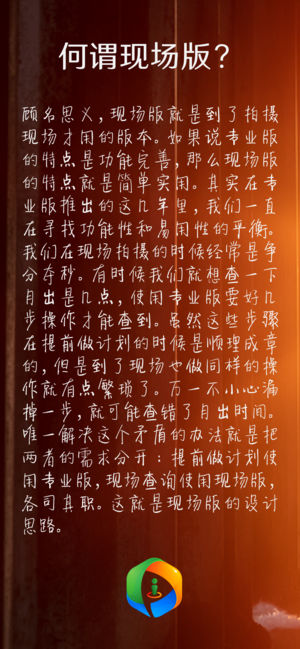 何谓现场版？
顾名思义，现场版就是到了拍摄
现场才用的版本。如果说专业版
的特点是功能完善，那么现场版
的特点就是简单实用。其实在专
业版推出的这几年里，我们一直
在寻找功能性和易用性的平衡。
我们在现场拍摄的时候经常是争
分夺秒。有时候我们就想查一下
月出是几点，使用专业版要好几
步操作才能查到。虽然这些步骤
在提前做计划的时候是顺理成章
的，但是到了现场也做同样的操
作就有点繁琐了。万一不小心漏
掉一步，就可能查错了月出时间。
唯一解决这个矛盾的办法就是把
两者的需求分开：提前做计划使
用专业版，现场查询使用现场版，
各司其职。这就是现场版的设计
思路。